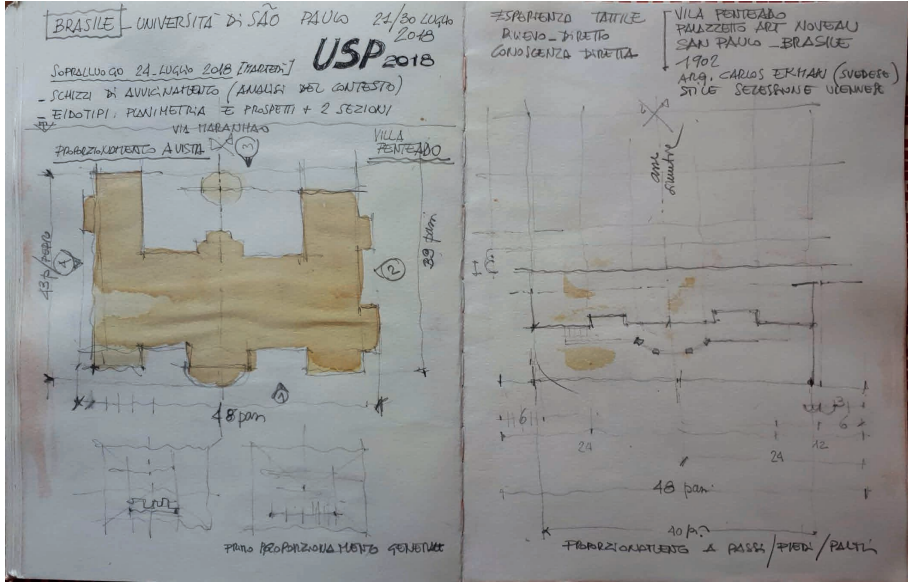 BRASILE _ UNIVERSITÀ Di SÃO PAULO 21/30 LUGLIO 2018
USP 2018
SOPRALLUOGO 24_LUGLIO 2018 [MARTEDÌ]
_ SCHIZZI DI AVVICINAMENTO (ANALISI DEL CONTESTO)
_ EIDOTIPI, PLANIMETRIA E PROSPETTI + 2 SEZIONI
VIA MARANHAO
PROPORZIONAMENTO A VISTA
VILLA PENTEADO
3
1
2
39 passi
1
48 passi
PRIMO PROPORZIONAMENTO GENERALE
ESPERIENZA TATTILE
RILIEVO_DIRETTO
CONOSCENZA DIRETTA
VILA PENTEADO
PALAZZETTO ART NOVEAU
SAN PAULO _ BRASILE
1902
ARQ. CARLOS EKMAN (SVEDESE)
STILE SECESSIONE VIENNESE
asse simmetria
6
3
6
24
24
12
48 passi
PROPORZIONAMENTO A PASSI/PIEDI/PALMI